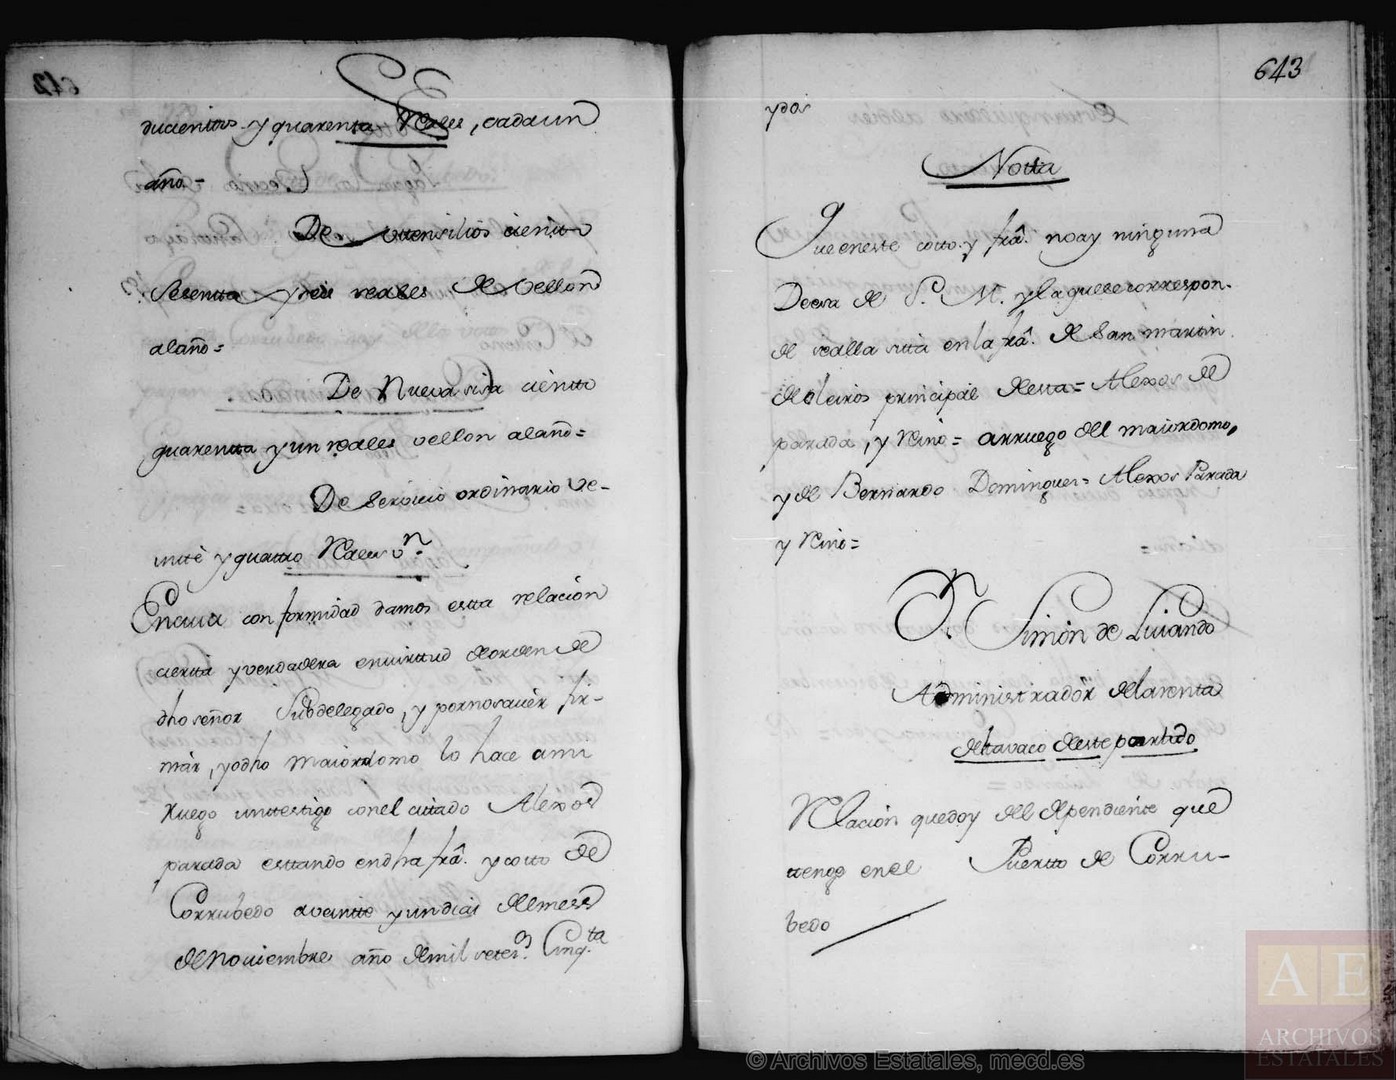 ducientos y quarenta Rales, cada un
año =
De uttensilios ciento
Sesentta y seis reales de vellon
al año =
De Nueva sisa ciento
quarentta y un reales vellon al año =
De servicio ordinario ve-
inttè y quattro Rales vn.
En cuia conformidad damos estta relacion
ciertta y verdadera en virttud de orden de
dho señor Subdelegado, y por no saver fir-
mar, yo dho maiordomo lo hace a mi
Ruego un testigo con el cittado Alexos
parada esttando en dha frâ. y cotto de
Corrubedo a veintte y un dias del mes
de Noviembre año de mil setesos. Cinqta
643
y dos
Notta
Que en este cotto y frâ. no ay ninguna
Decra de S. M. y la que se correspon-
de se alla sitta en la frâ. de San martin
de oleiros principal de esta = Alexos de
parada, y Nino = a rruego del maiordomo,
y de Bernardo Domingues = Alexos Parada
y Nino =
Dn. Simon de Luiando
Administrador de la renta
del tavaco de este partido
Relacion que doy del dependiente que
tengo en el Puertto de Corru-
bedo
AE
ARCHIVOS
ESTATALES
© Archivos Estatales, mecd.es